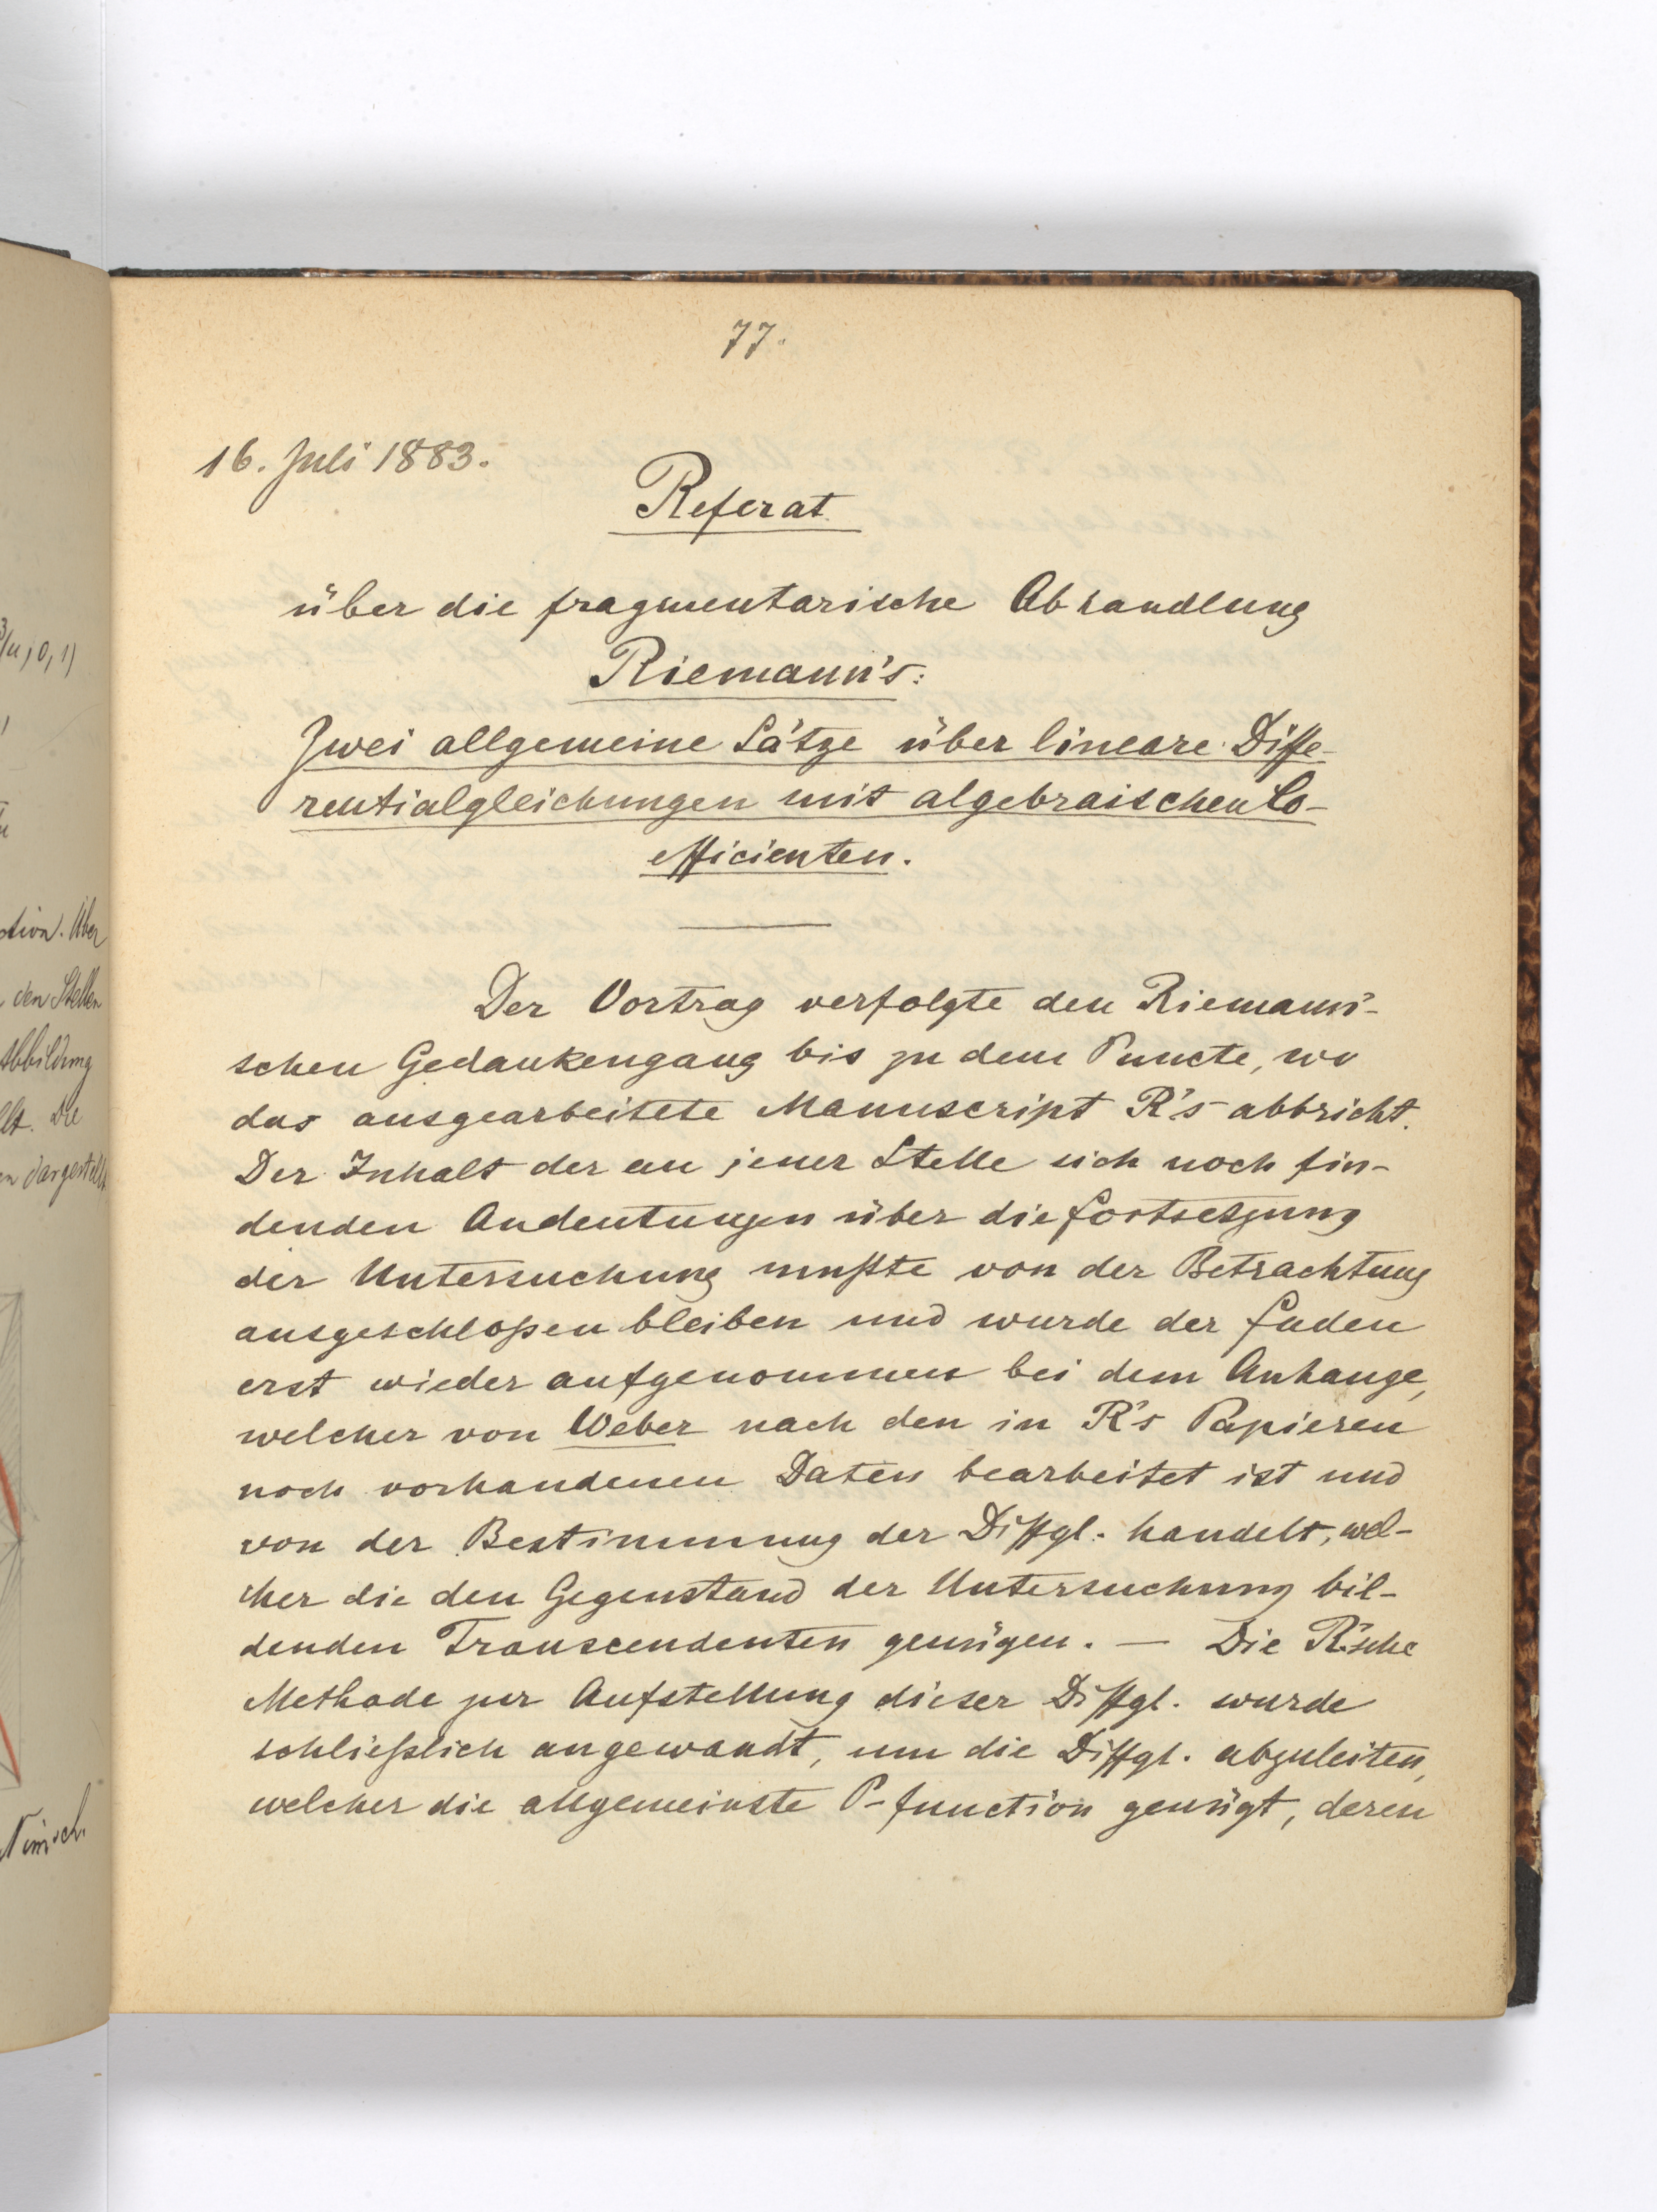 77.
16. Juli 1883.
Referat
über die fragmentarische Abhandlung
Riemann's:
Zwei allgemeine Sätze über lineare Diffe-
rentialgleichungen mit algebraischen Co-
efficienten.
Der Vortrag verfolgte den Riemann'-
schen Gedankengang bis zu dem Puncte, wo
das ausgearbeitete Manuscript R's abbricht.
Der Inhalt der an jener Stelle sich noch fin-
denden Andeutungen über die Fortsetzung
der Untersuchung mußte von der Betrachtung
ausgeschloßen bleiben und wurde der Faden
erst wieder aufgenommen bei dem Anhange,
welcher von Weber nach den in R's Papieren
noch vorhandenen Daten bearbeitet ist und
von der Bestimmung der Diffgl. handelt, wel-
cher die den Gegenstand der Untersuchung bil-
denden Transcendenten genügen. — Die R'sche
Methode zur Aufstellung dieser Diffgl. wurde
schließlich angewandt, um die Diffgl. abzuleiten,
welcher die allgemeinste P-function genügt, deren
3/u, 0, 1)
Über
den Stellen
Abbildung
Die
dargestellt